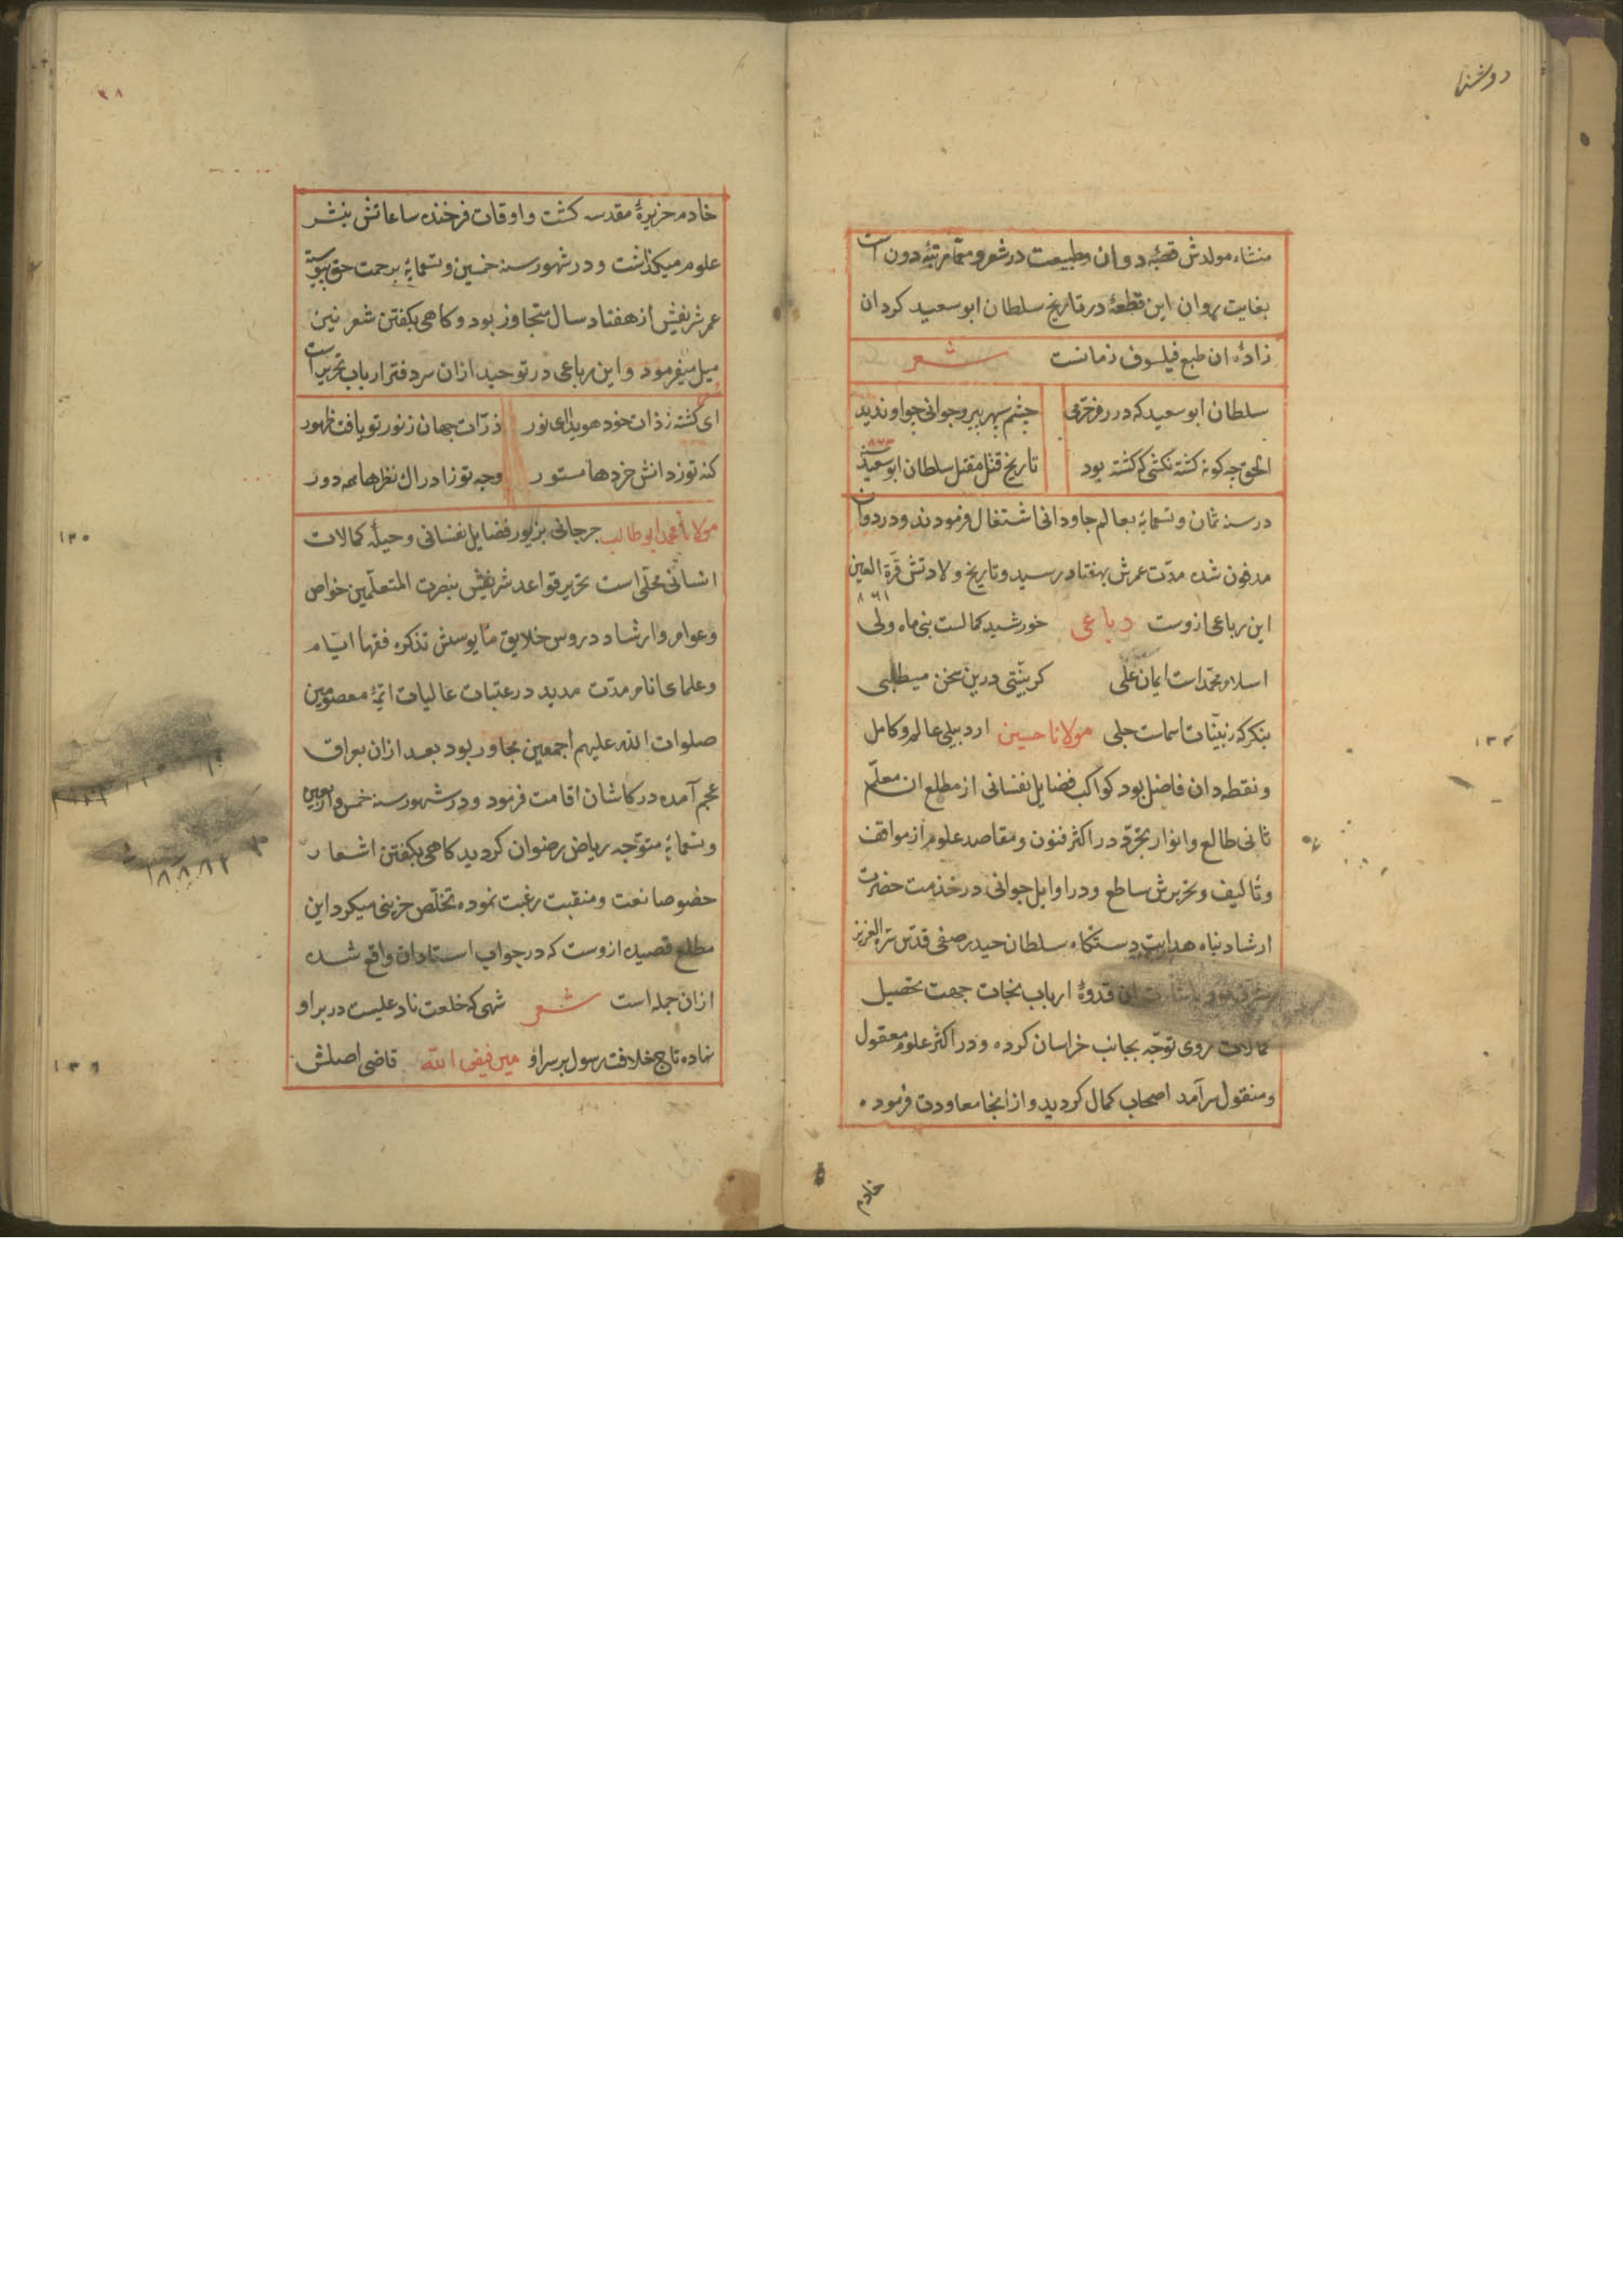 منشاء مولدش قصبهٔ دوان وطبیعت در شعر و معمّا مرتبهٔ دون است
بغایت روان این قطعهٔ در تاریخ سلطان ابو سعید کردان
زادهٔ ان طبع فیلسوف زمانست شعر
سلطان ابو سعید که در چشم سپهر پیر و جوانی چو او ندید
الحق چه کونه کشته نکشتی که کشته بود تاریخ قتل مقتل سلطان ابو سعید
۸۷۳
در سنه ثمان و تسمایهٔ بعالم جاودانی اشتغال فرمودند و در دوان
مدفون شده مدّت عمرش بهفتاد رسید و تاریخ ولادتش قرّة العین
این رباعی ازوست رباعی خورشید کمالست نبی ماه ولی
اسلام محمّد است ایمان علی کر بیّنتی درین سخن میطلبی
بنکر که ز بیّنات اسماست جلی مولانا حسین اردبیلی عالم و کامل
و نقطه دان فاضل بود کواکب فضایل نفسانی از مطلع ان معلّم
ثانی طالع و انوار تجرّد در اکثر فنون و مقاصد علوم از مواقف
و تالیف و تحریرش ساطع و در اوایل جوانی در خدمت حضرت
ارشاد پناه هدایت دستکاه سلطان حیدر صفی قدّس سرّه العزیز
قدوهٔ ارباب نجات جهت تحصیل
کمالات روی توجّه بجانب خراسان کرده و در اکثر علوم معقول
و منقول سرآمد اصحاب کمال کردید و از انجا معاودت فرموده
خادم
۱۳۴
۳۸
خادم حزیرهٔ مقدسه کشت و اوقات فرخنده ساعاتش بنشر
علوم میکذاشت و در شهور سنه خمسین و تسمایهٔ برحمت حق پیوسته
عمر شریفش از هفتاد سال متجاوز بود و کاهی بکفتن شعر نیز
میل میفرمود و این رباعی در توحید ازان سر دفتر ارباب تحریر است
ای کشته ز ذات خود هویدا ی نور ذرّات جهان ز نور تو یافت ظهور
کنه تو ز دانش خردها مستور وجه تو ز ادراک نظرها همه دور
مولانا محمد ابو طالب جرجانی بزیور فضایل نفسانی و حیلهٔ کمالات
انسانی محلّی است تحریر قواعد شریفش بنصرت المتعلّمین خواص
و عوام و ارشاد دروس خلایق تذکره فقها ایّام
و علمای انام مدّت مدید در عتبات عالیات ائمّهٔ معصومین
صلوات الله علیهم اجمعین مجاور بود بعد ازان بعراق
عجم آمده در کاشان اقامت فرمود و در شهور سنه خمس و اربعین
و تسمایهٔ متوّجه ریاض رضوان کردید کاهی بکفتن اشعار
خصوصا نعت و منقبت رغبت نموده تخلّص حزینی میکرد این
مطلع قصیده ازوست که در جواب استادان واقع شده
ازان جمله است شعر شهی که خلعت ناد علیست در بر او
نهاده تاج خلافت رسول بر سر او میر فیض الله قاضی اصلش
۱۳۵
۱۳۶